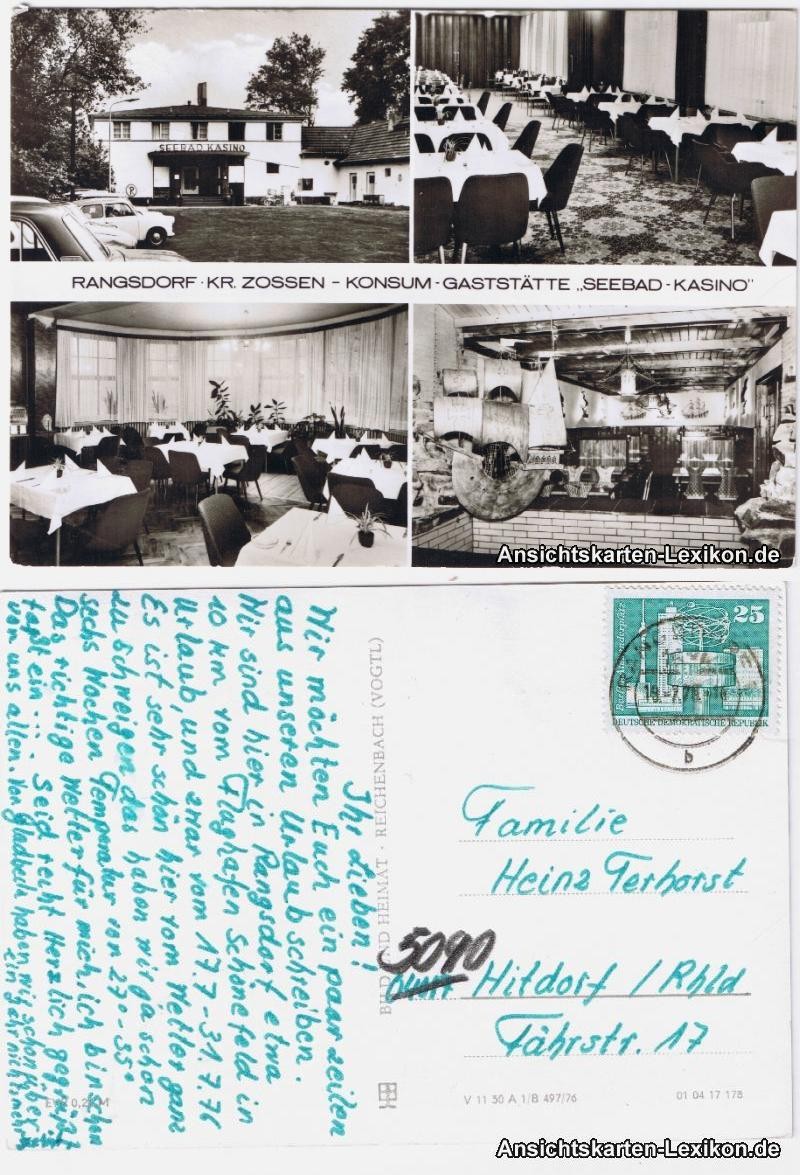 SEEBAD KASINO
RANGSDORF · KR. ZOSSEN - KONSUM - GASTSTÄTTE „SEEBAD - KASINO"
Ansichtskarten-Lexikon.de
Ihr Lieben!
Wir möchten Euch ein paar zeilen
aus unseren Urlaub schreiben.
Wir sind hier in Rangsdorf etwa
10 km vom Flughafen Schönefeld in
Urlaub, und zwar vom 17.7-31.7.76
Es ist sehr schön hier vom Wetter ganz
zu schweigen das haben wir ja schon
sechs Wochen Temperatur von 27°-35°
Das richtige Wetter für mich, ich bin schon
Seid recht Herzlich gegrüßt
von uns allen. Von Gladbach haben wir schon über
ein Jahr nichts mehr
BILD UND HEIMAT · REICHENBACH (VOGTL)
25
DEUTSCHE DEMOKRATISCHE REPUBLIK
b
Familie
Heinz Terhorst
5090
Hitdorf / Rhld
Fährstr. 17
V 11 50 A 1/B 497/76
01 04 17 178
Ansichtskarten-Lexikon.de